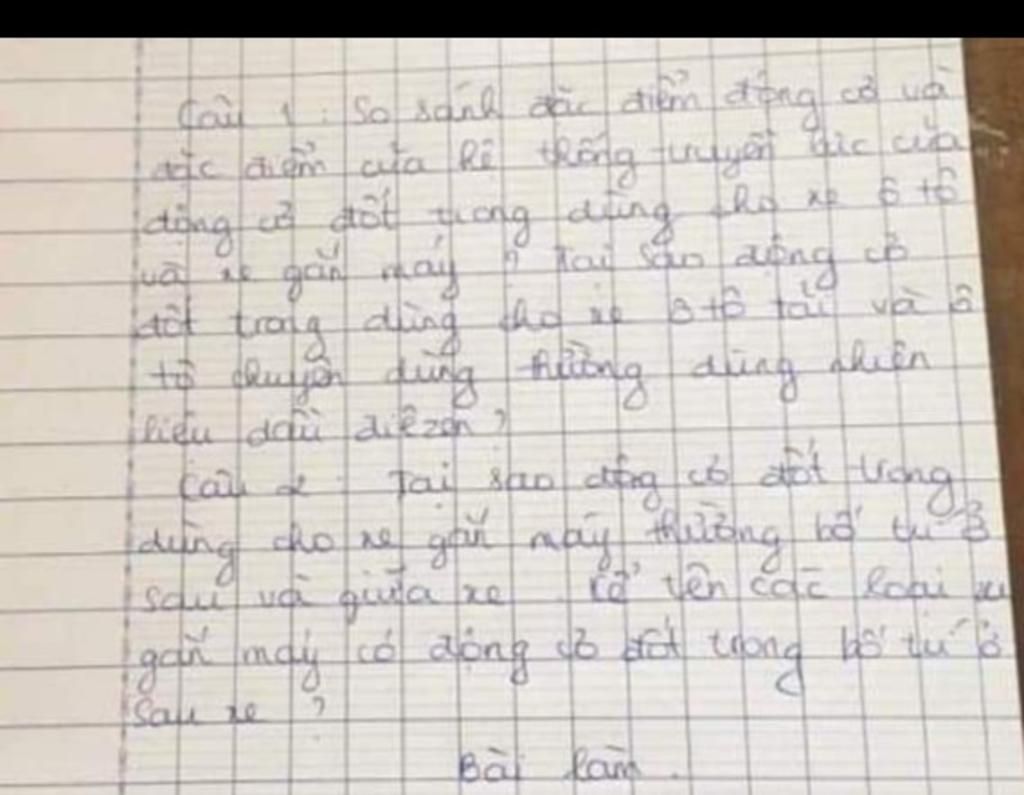 Câu 1 : So sánh đặc điểm động cơ và
đặc điểm của hệ thống truyền lực của
động cơ đốt trong dùng cho xe ô tô
và xe gắn máy ? Tại sao động cơ
đốt trong dùng cho xe ô tô tải và ô
tô chuyên dùng thường dùng nhiên
liệu dầu điêzen ?
Câu 2 Tại sao động cơ đốt trong
dùng cho xe gắn máy thường bố trí ở
sau và giữa xe . Kể tên các loại xe
gắn máy có động cơ đốt trong bố trí ở
sau xe ?
Bài làm .